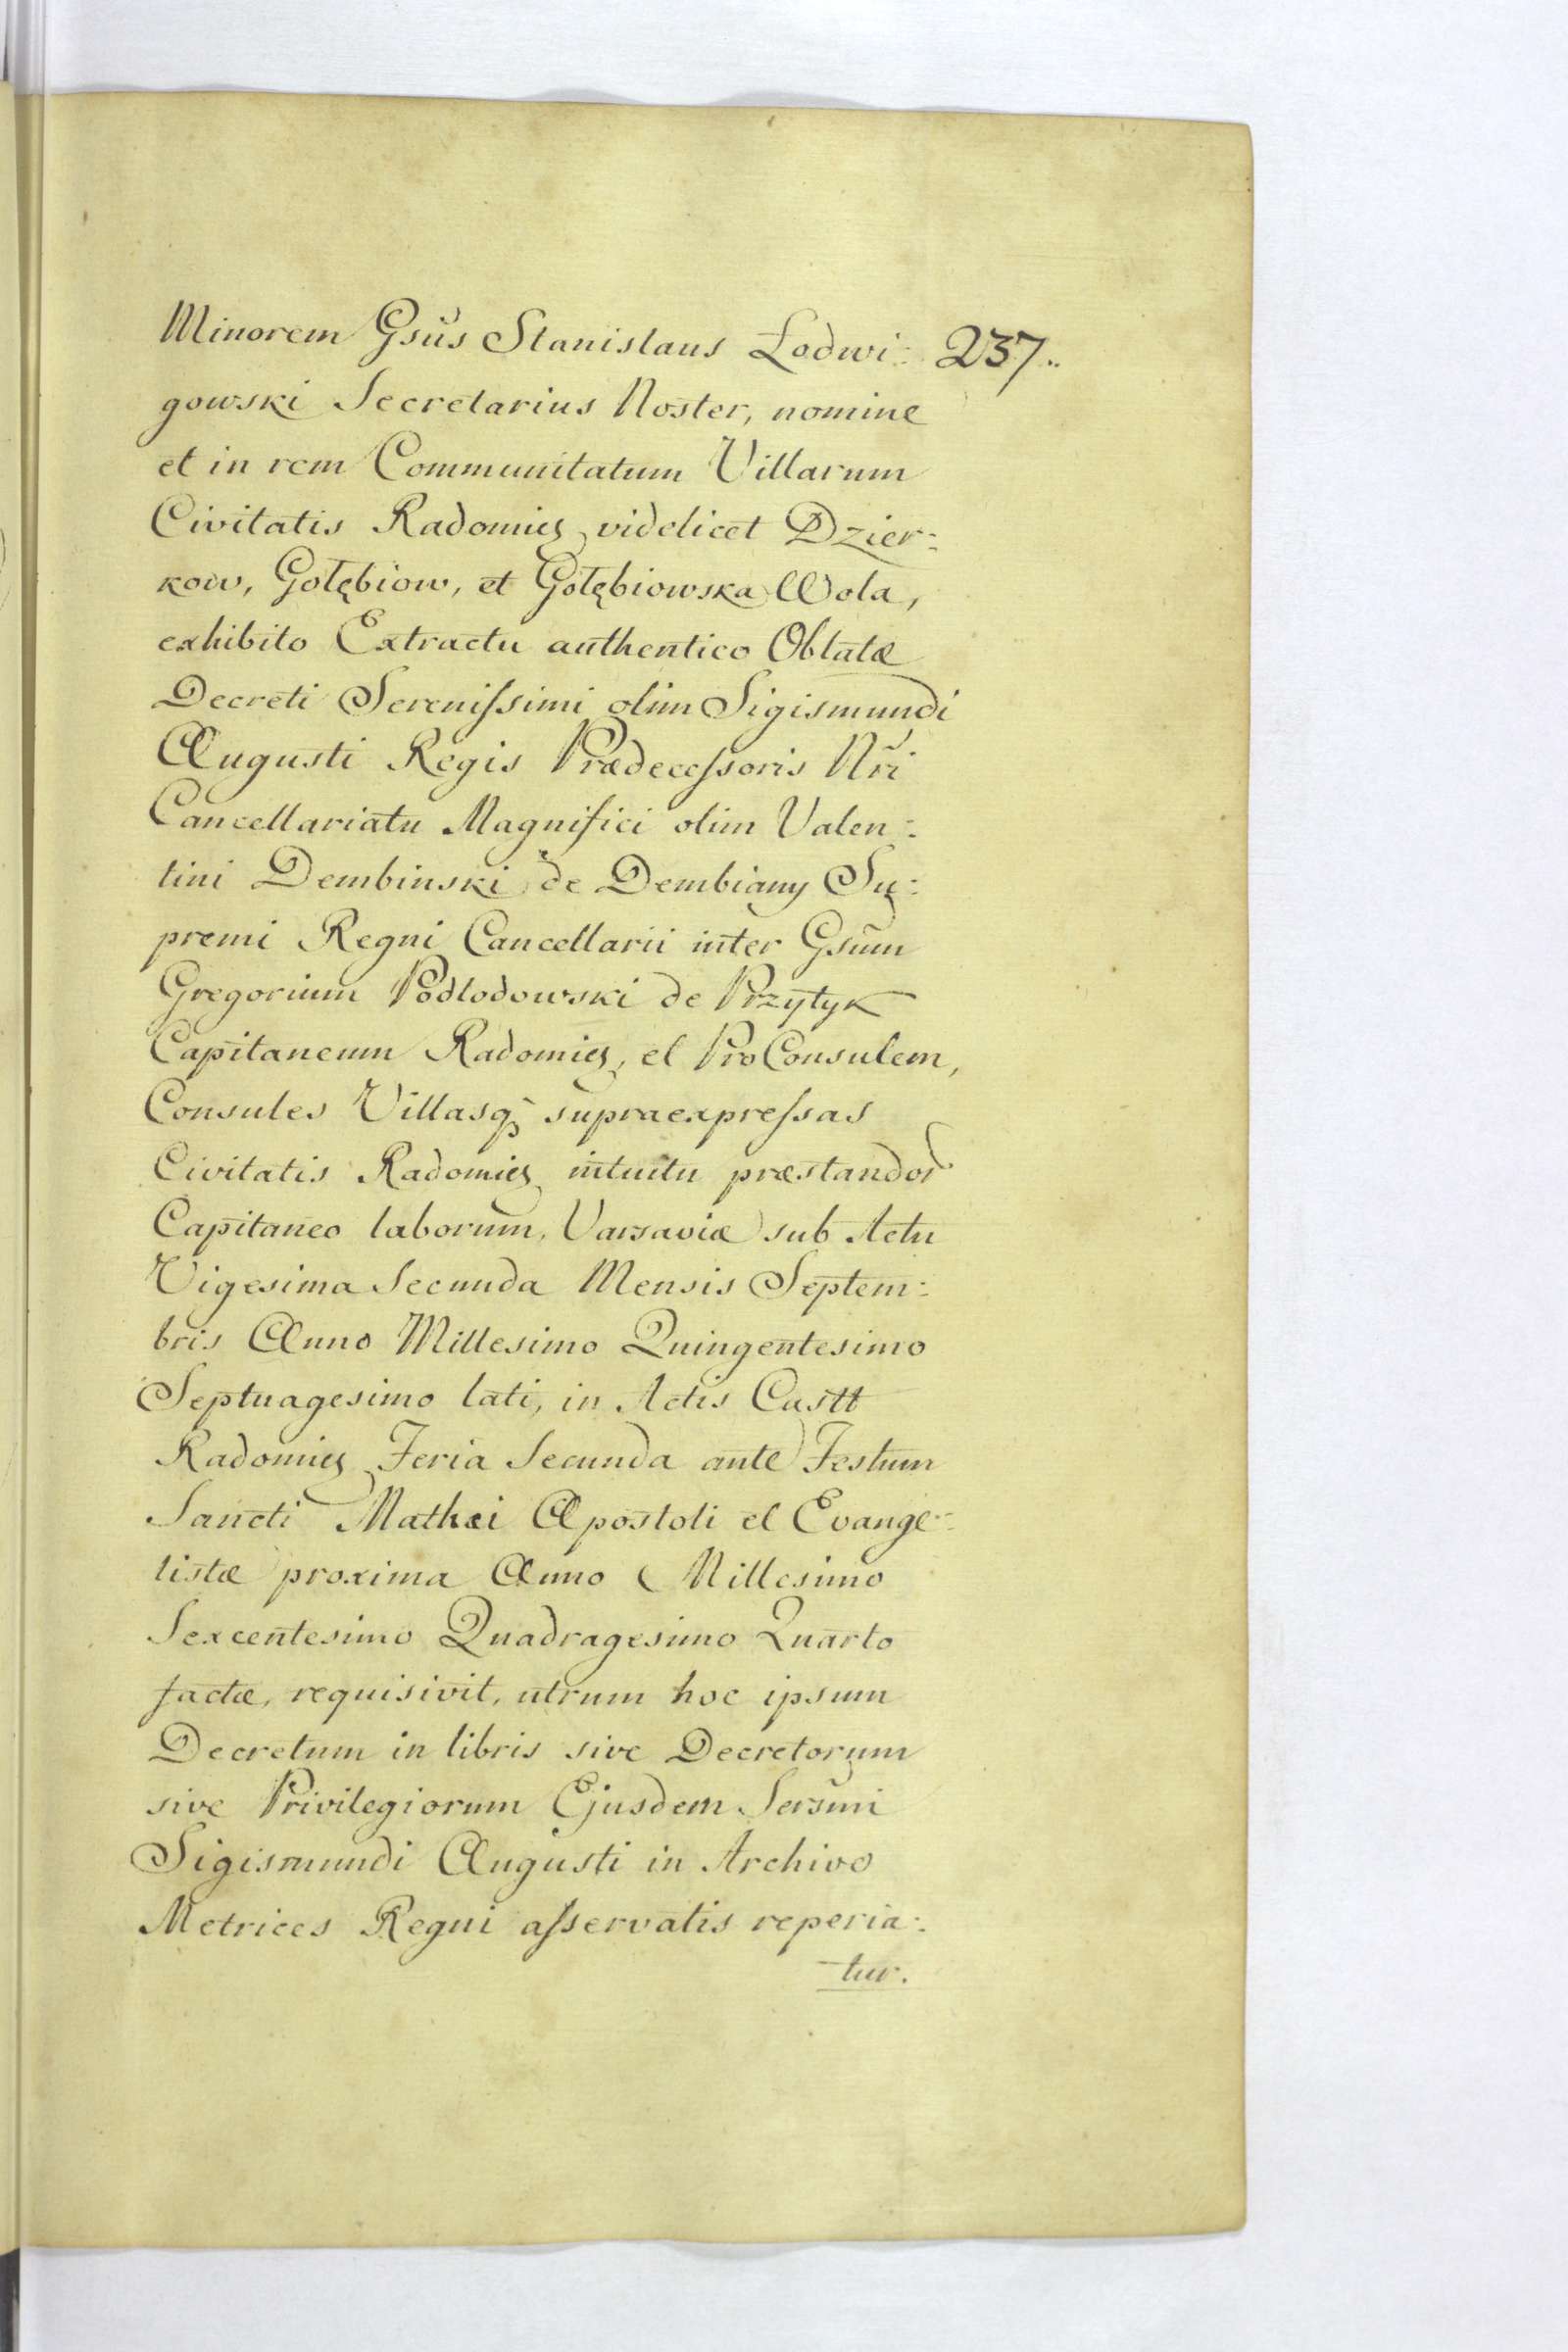 Minorem Gsūs Stanislaus Lodwi: 237..
gowski Secretarius Noster, nomine
et in rem Communitatum Villarum
Civitatis Radomieȝ videlicet Dzier:
kow, Gołębiow, et Gołębiowska Wola,
exhibito Extractu authentico Oblatæ
Decreti Sereniſsimi olim Sigismundi
Augusti Regis Prædeceſsoris Nr̃i
Cancellariatu Magnifici olim Valen:
tini Dembinski de Dembiany Su:
premi Regni Cancellarii inter Gsūm
Gregorium Podlodowski de Przytyk
Capitaneum Radomieȝ, et ProConsulem,
Consules Villasqȝ supraexpreſsas
Civitatis Radomieȝ intuitu præstandor
Capitaneo laborum, Varsaviæ sub Actu
Vigesima Secunda Mensis Septem:
bris Anno Millesimo Quingentesimo
Septuagesimo lati, in Actis Castt
Radomieȝ Feria Secunda ante Festum
Sancti Mathæi Apostoli et Evange:
listæ proxima Anno Millesimo
Sexcentesimo Quadragesimo Quarto
factæ, requisivit, utrum hoc ipsum
Decretum in libris sive Decretorum
sive Privilegiorum Ejusdem Sersm̃i
Sigismundi Augusti in Archivo
Metrices Regni aſservatis reperia:
tur.